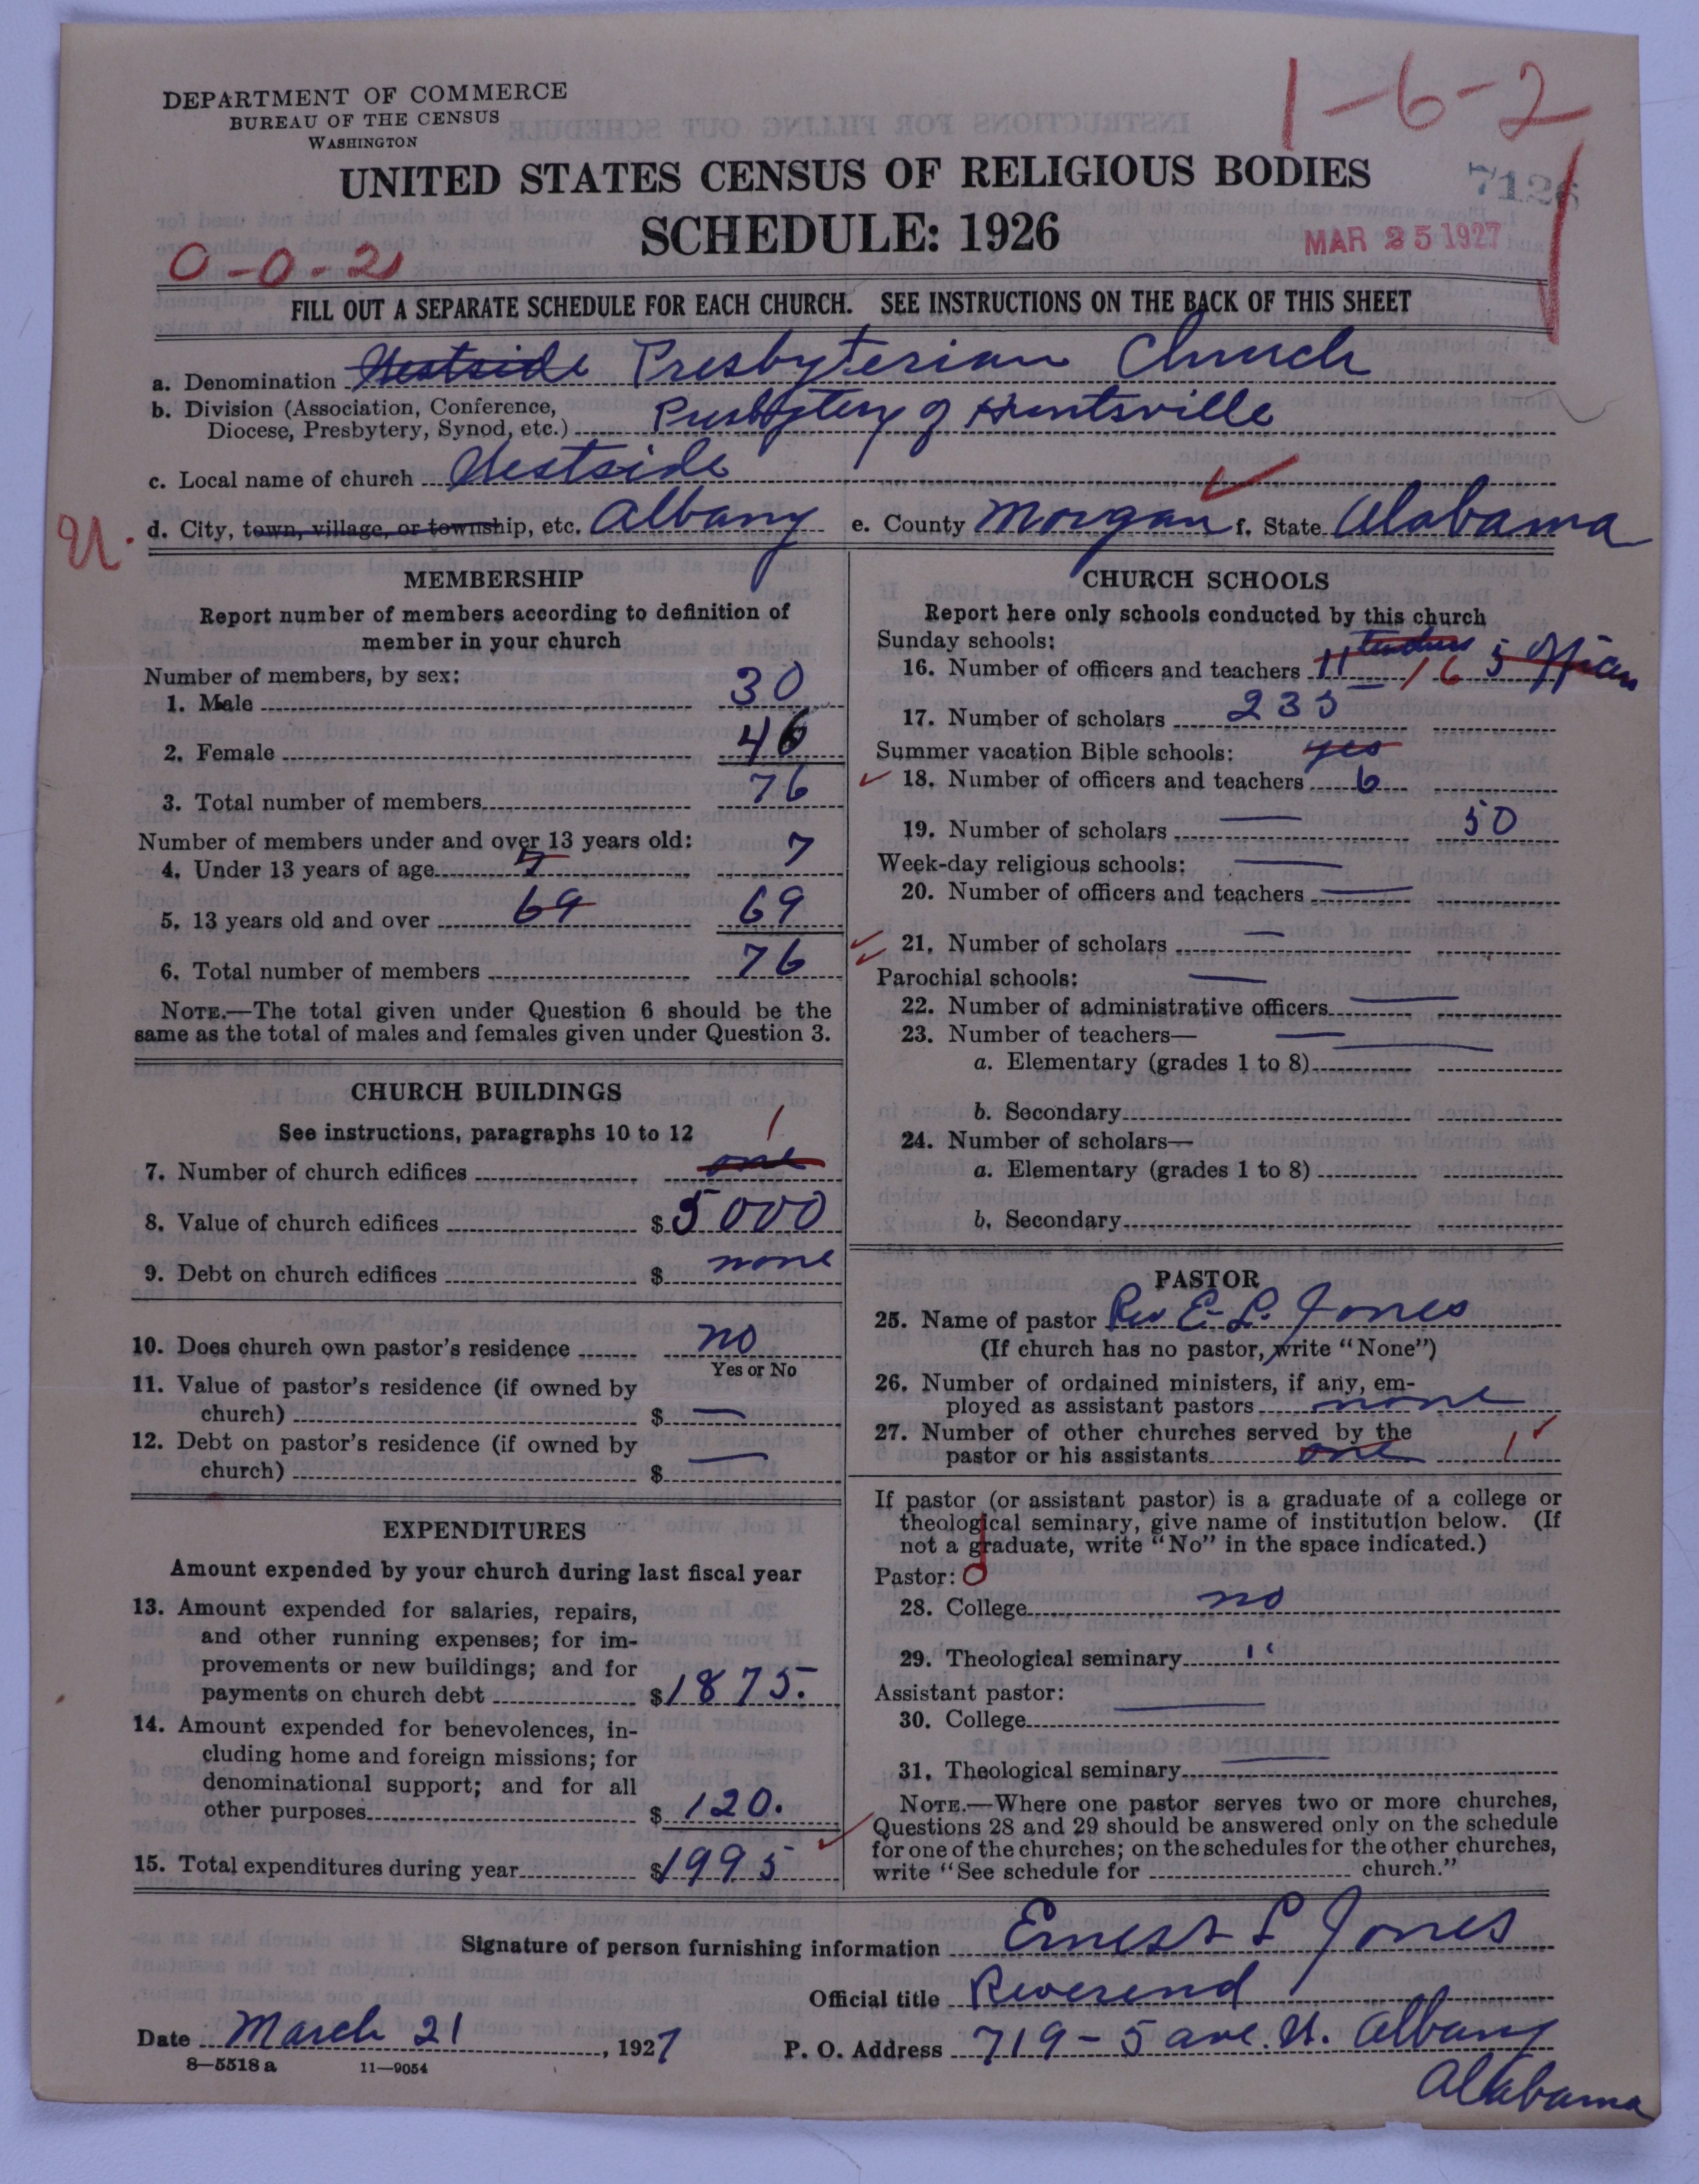 DEPARTMENT OF COMMERCE
BUREAU OF THE CENSUS
WASHINGTON
1-6-2
UNITED STATES CENSUS OF RELIGIOUS BODIES
SCHEDULE: 1926
7126
MAR 25 1927
0-0-2
FILL OUT A SEPARATE SCHEDULE FOR EACH CHURCH. SEE INSTRUCTIONS ON THE BACK OF THIS SHEET
a. Denomination Westside Presbyterian Church
b. Division (Association, Conference,
Diocese, Presbytery, Synod, etc.) Presbytery of Huntsville
c. Local name of church Westside
U. d. City, town, village, or township, etc. Albany e. County Morgan f. State Alabama
MEMBERSHIP
Report number of members according to definition of
member in your church
Number of members, by sex:
1. Male 30
2. Female 46
3. Total number of members 76
Number of members under and over 13 years old:
4. Under 13 years of age 7 7
5. 13 years old and over 69 69
6. Total number of members 76
NOTE.—The total given under Question 6 should be the
same as the total of males and females given under Question 3.
CHURCH BUILDINGS
See instructions, paragraphs 10 to 12
7. Number of church edifices one 1
8. Value of church edifices $ 5000
9. Debt on church edifices $ none
10. Does church own pastor's residence no
Yes or No
11. Value of pastor's residence (if owned by
church) $ —
12. Debt on pastor's residence (if owned by
church) $ —
EXPENDITURES
Amount expended by your church during last fiscal year
13. Amount expended for salaries, repairs,
and other running expenses; for im-
provements or new buildings; and for
payments on church debt $1875.
14. Amount expended for benevolences, in-
cluding home and foreign missions; for
denominational support; and for all
other purposes $ 120.
15. Total expenditures during year $1995
CHURCH SCHOOLS
Report here only schools conducted by this church
Sunday schools:
16. Number of officers and teachers 11 teachers 16 5 officers
17. Number of scholars 235
Summer vacation Bible schools: yes
18. Number of officers and teachers 6
19. Number of scholars — 50
Week-day religious schools: —
20. Number of officers and teachers —
21. Number of scholars —
Parochial schools: —
22. Number of administrative officers —
23. Number of teachers— —
a. Elementary (grades 1 to 8) —
b. Secondary
24. Number of scholars—
a. Elementary (grades 1 to 8)
b. Secondary
PASTOR
25. Name of pastor Rev E. L. Jones
(If church has no pastor, write "None")
26. Number of ordained ministers, if any, em-
ployed as assistant pastors none
27. Number of other churches served by the
pastor or his assistants one 1
If pastor (or assistant pastor) is a graduate of a college or
theological seminary, give name of institution below. (If
not a graduate, write "No" in the space indicated.)
Pastor: 0
28. College no
29. Theological seminary "
Assistant pastor: —
30. College
31. Theological seminary —
NOTE.—Where one pastor serves two or more churches,
Questions 28 and 29 should be answered only on the schedule
for one of the churches; on the schedules for the other churches,
write "See schedule for church."
Signature of person furnishing information Ernest L Jones
Official title Reverend
Date March 21, 1927
P. O. Address 719-5 ave. N. Albany
Alabama
8—5518 a 11—9054